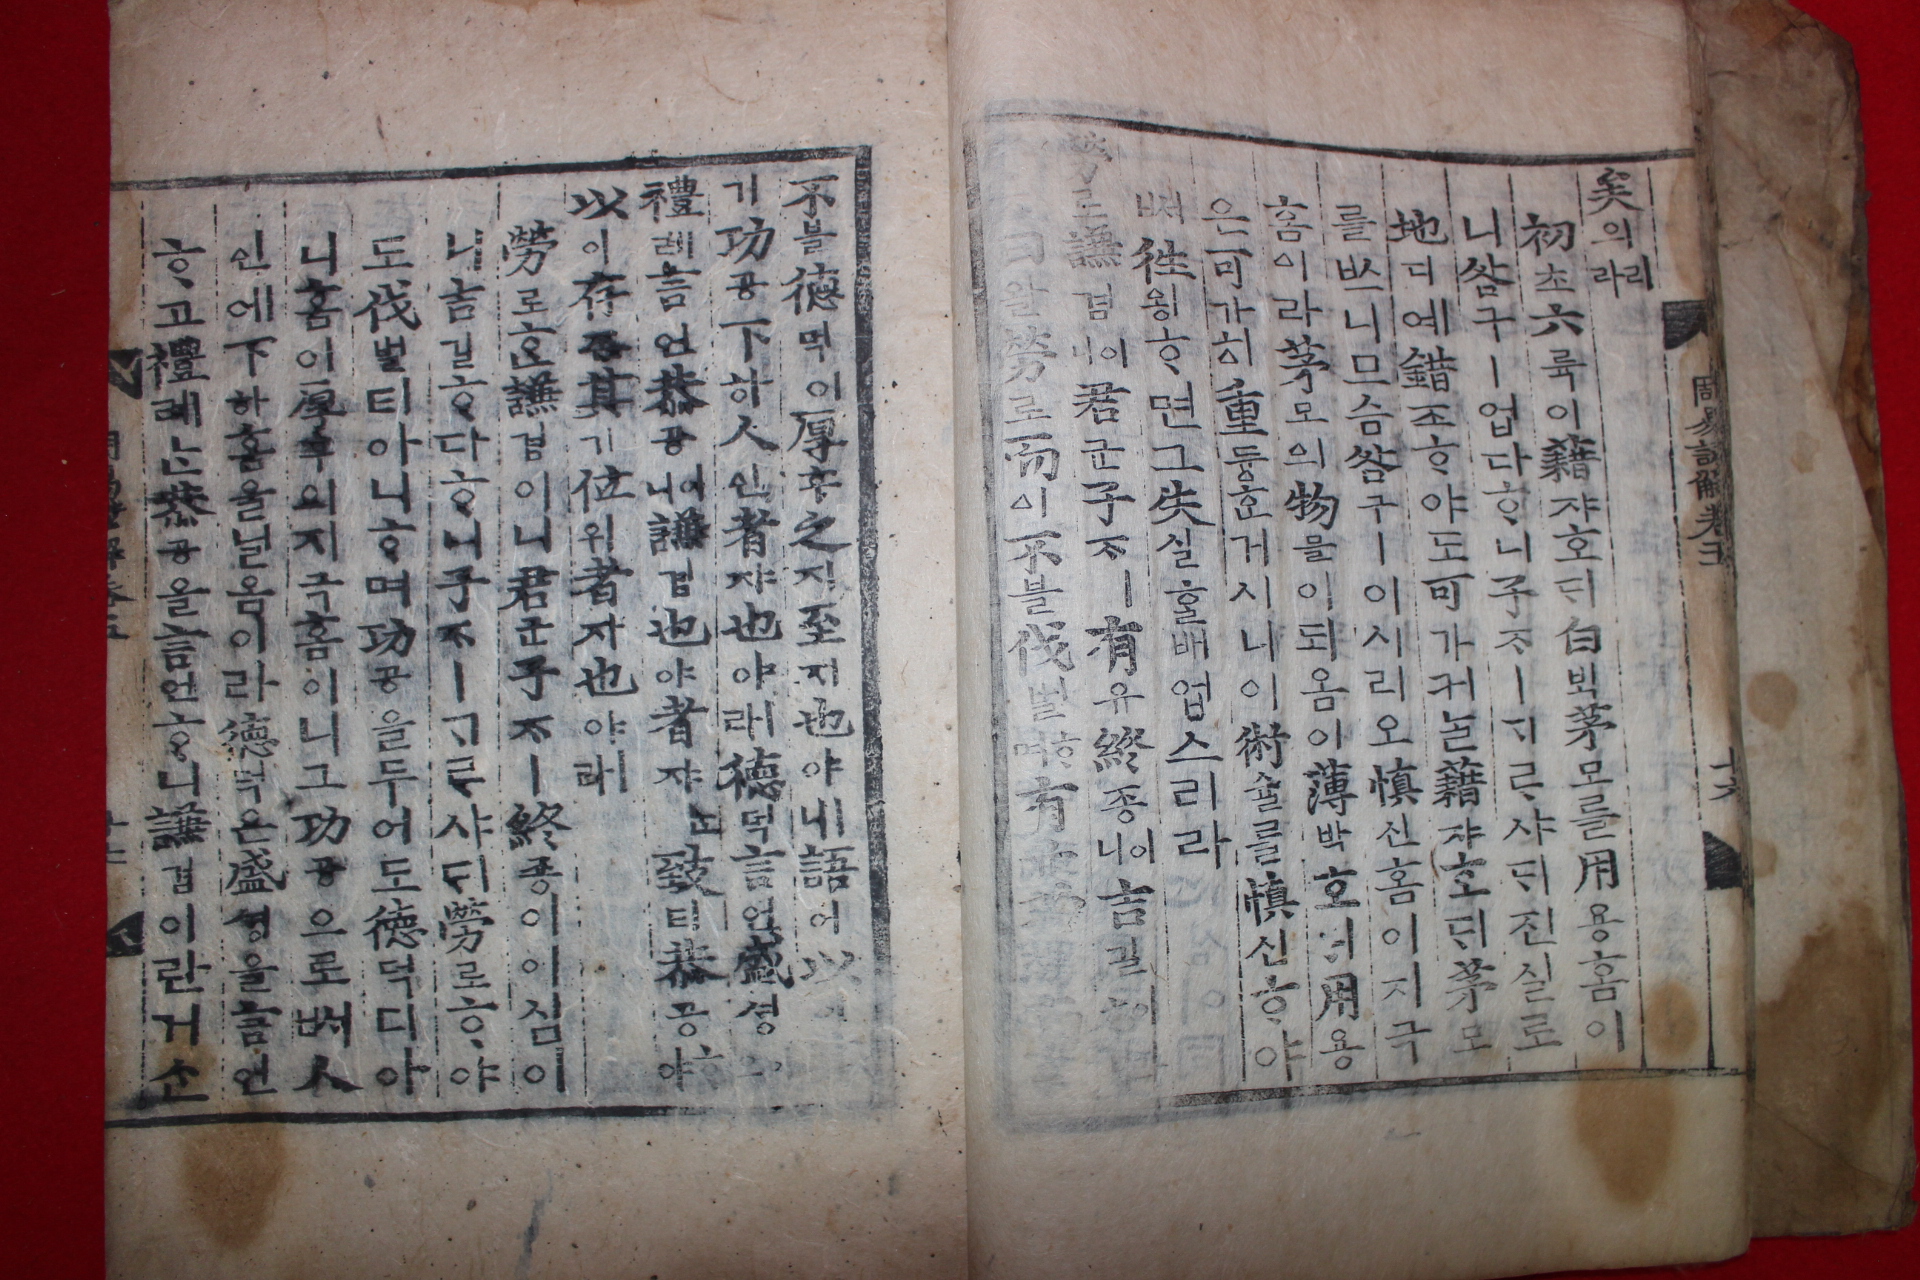 周易諺解卷五
十六
矣의리라
初초六륙이藉쟈호ᄃᆡ白ᄇᆡᆨ茅모를用용홈이
니咎구ㅣ업다ᄒᆞ니子ᄌᆞㅣᄀᆞᄅᆞ샤ᄃᆡ진실로
地디예錯조ᄒᆞ야도可가커ᄂᆞᆯ藉쟈호ᄃᆡ茅모
를ᄡᅳ니므슴咎구ㅣ이시리오愼신홈이지극
홈이라茅모의物믈이되옴이薄박호ᄃᆡ用용
은可가히重듕ᄒᆞᆫ거시니이術슐를愼신ᄒᆞ야
ᄡᅥ往왕ᄒᆞ면그失실홀배업스리라
勞로謙겸이니君군子ᄌᆞㅣ有유終죵이니吉길
曰왈勞로而이不블伐벌ᄒᆞ며有
不블德덕이厚후之지至지也야ㅣ니語어以
기功공下하人인者쟈也야ㅣ라德덕言언盛셩
禮례言언恭공이니謙겸也야者쟈ᄂᆞᆫ致티恭공ᄒᆞ야
以이存존其기位위者쟈也야ㅣ라
勞로ᄒᆞᆫ謙겸이니君군子ᄌᆞㅣ終죵이이심이
니吉길ᄒᆞ다ᄒᆞ니子ᄌᆞㅣᄀᆞᄅᆞ샤ᄃᆡ勞로ᄒᆞ야
도伐벌티아니ᄒᆞ며功공을두어도德덕디아
니홈이厚후의지극홈이니그功공으로ᄡᅥ人
인에下하홈을닐옴이라德덕은盛셩을言언
ᄒᆞ고禮례ᄂᆞᆫ恭공을言언ᄒᆞ니謙겸이란거슨